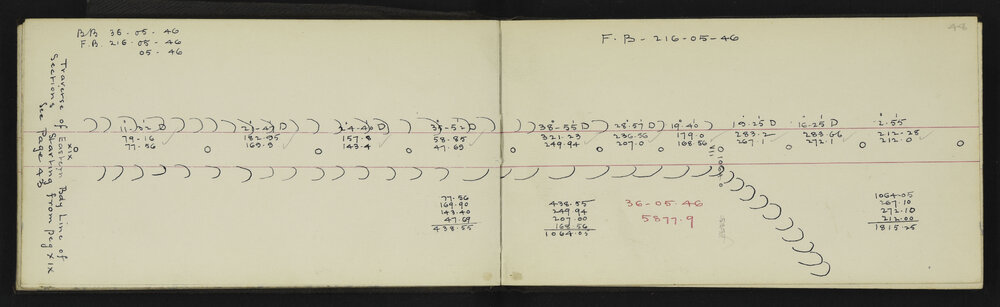 BB 36-05-46
F.B. 216-05-46
05-46
Traverse of Eastern Bdy Line of
Sections Starting from peg XIX
See Page 43
79-16
77.56
182.95
169.9
24-40 D
157.8
143.4
35-52 D
58-85
47.69
77.56
169.90
143.40
47.69
438.55
F.B-216-05-46
38-55 D
321.23
249.94
28.57 D
236.56
207.0
19.40
179.0
168.56
283.2
267.1
16.25 D
288.66
272.1
2.55
212.28
212.0
438.55
249.94
207.00
168.56
1064.05
36-05.46
5877.9
1064.05
267.10
272.10
212.00
1815.25